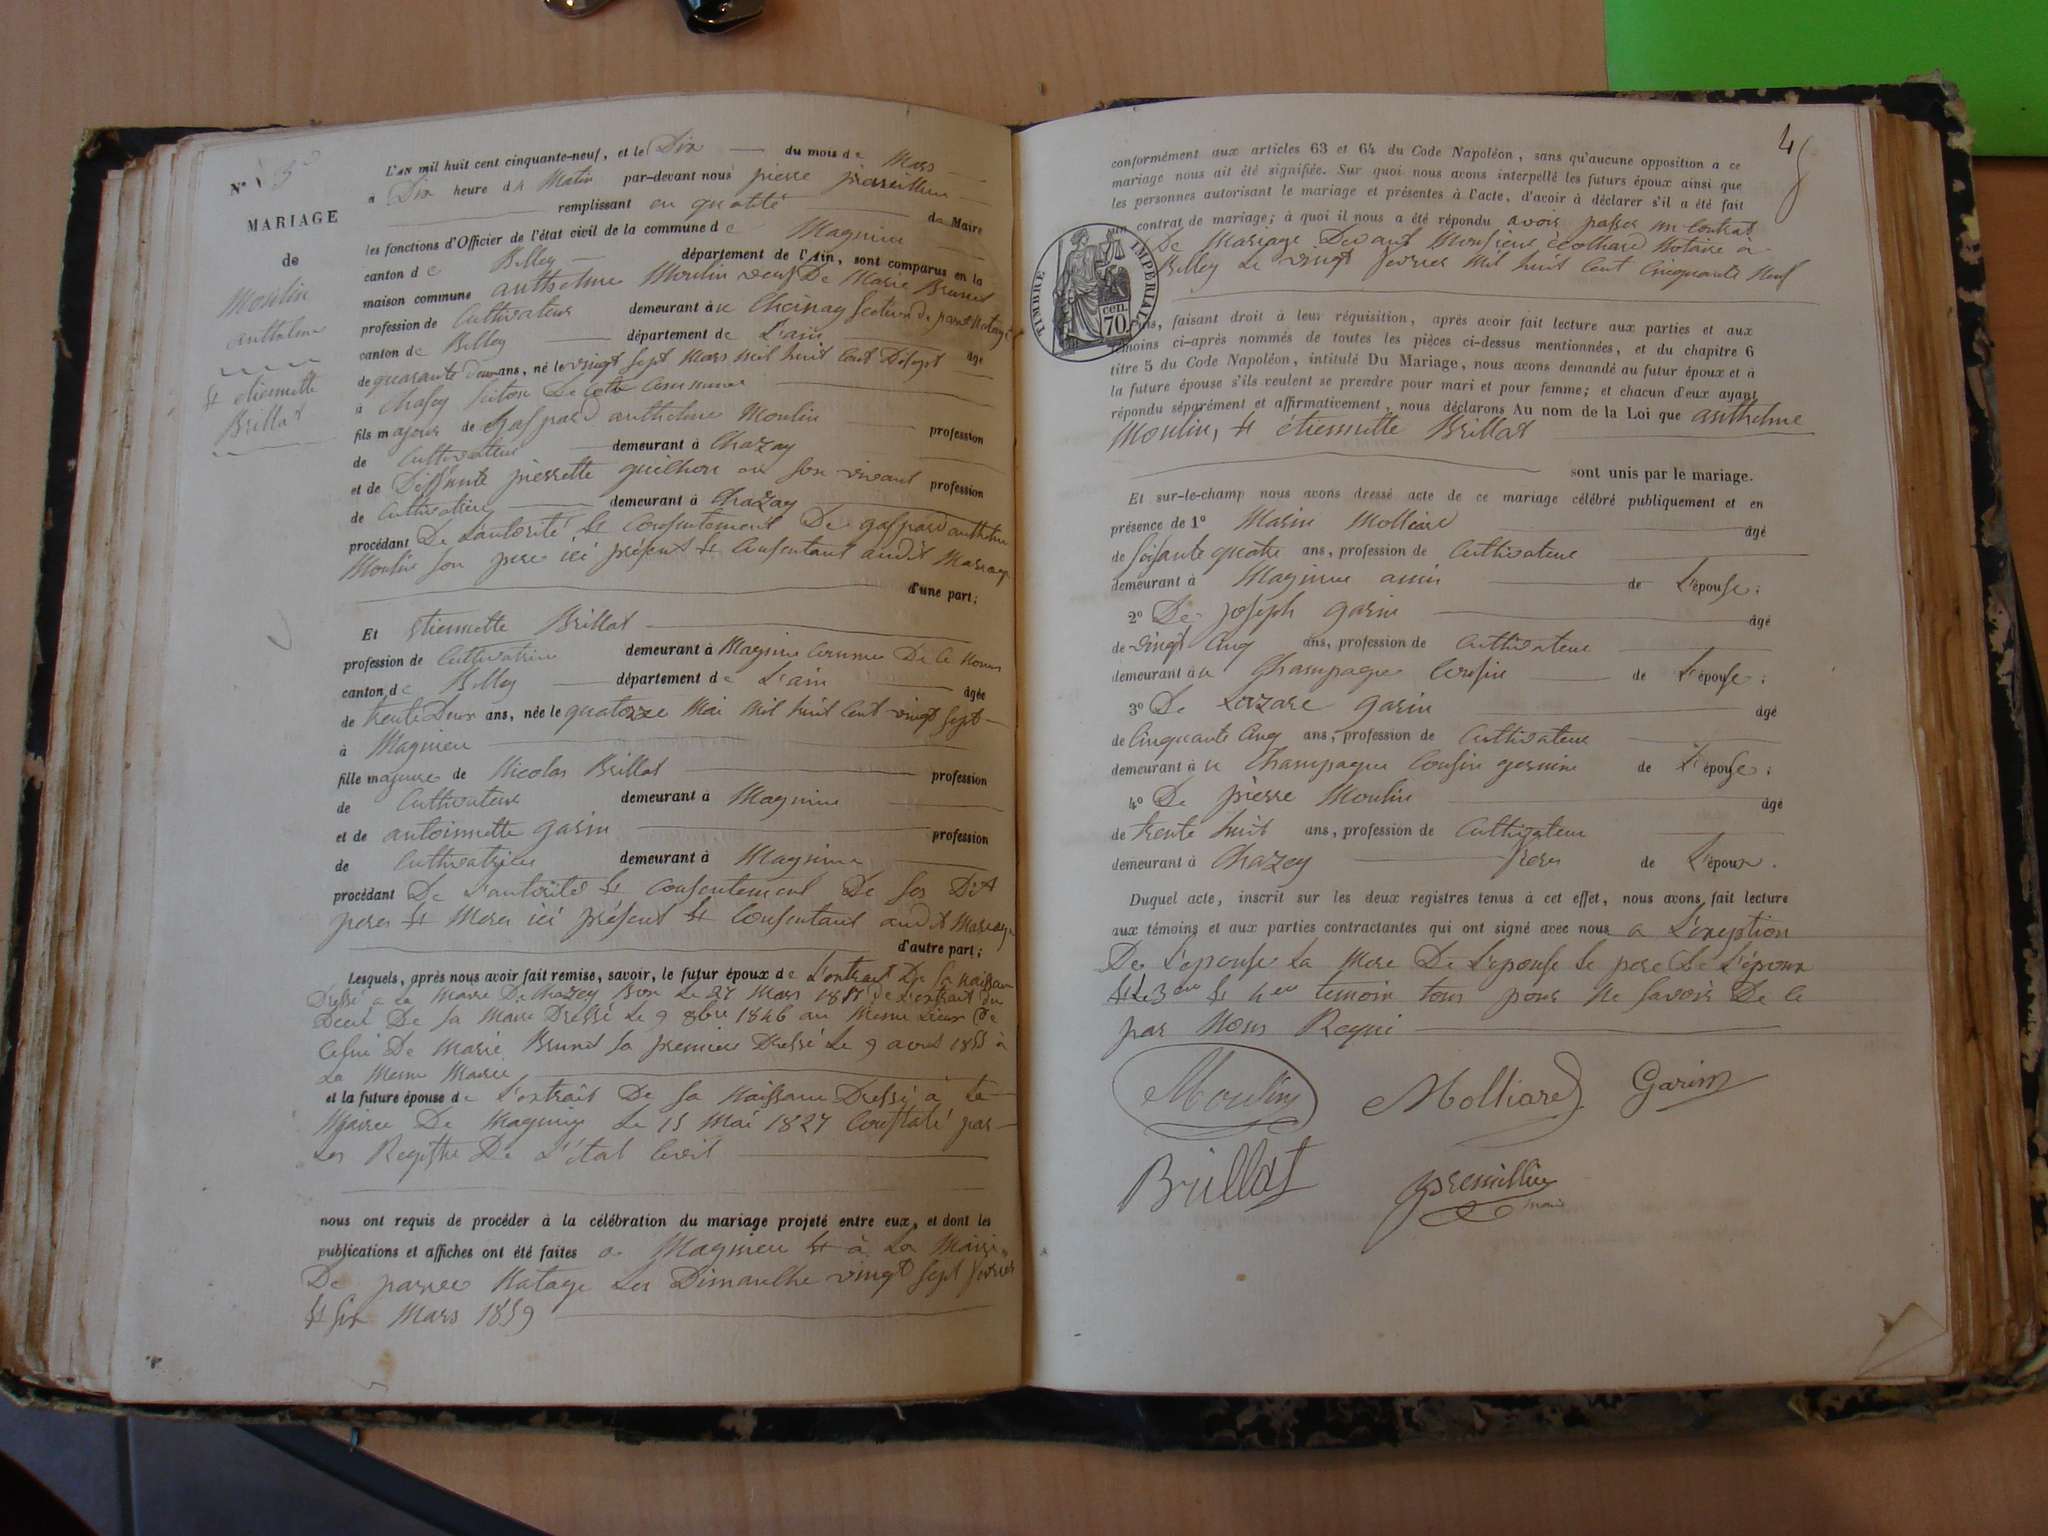 N° 3
MARIAGE
de
Moulin
anthelme
& etiennette
Brillat
L'AN mil huit cent cinquante-neuf, et le Dix du mois de Mars
a Dix heure du Matin par-devant nous pierre
remplissant en qualité de Maire
les fonctions d'Officier de l'état civil de la commune de Magnieu
canton de Belley département de l'Ain, sont comparus en la
maison commune anthelme Moulin veuf De Marie Brunet
profession de Cultivateur demeurant à
canton de Belley département de L'ain âgé
de quarante deux ans, né le vingt sept Mars mil huit Cent Disept
à Chasey De Cette Commune
fils majeur de Gaspard anthelme Moulin profession
de Cultivateur demeurant à Chazey
et de Deffunte pierrette guilhon en son vivant profession
de Cultivatrice demeurant à Chazey
procédant De L'autorité & Consentement De gaspard anthelme
Moulin son pere ici présent & Consentant audit Mariage
d'une part;
Et Etiennette Brillat
profession de Cultivatrice demeurant à Magnieu Commune De Ce Nom
canton de Belley département de L'ain âgée
de trente Deux ans, née le quatorze Mai Mil huit Cent vingt sept
à Magnieu
fille majeure de Nicolas Brillat profession
de Cultivateur demeurant à Magnieu
et de antoinette garin profession
de Cultivatrice demeurant à Magnieu
procédant De L'autorité & Consentement De ses Dit
peres & Meres ici présent & Consentant audit Mariage
d'autre part;
Lesquels, après nous avoir fait remise, savoir, le futur époux de L'extrait De sa Naissance
Dressé a La Mairie De Chazey Bon Le 27 Mars 1817 de L'extrait du
Décé De sa Mere Dressé Le 9 8bre 1846 au Meme Lieux De
Celui De Marie Brunet sa premiere Dressé Le 9 avril 1855 à
La Meme Mairie
et la future épouse de L'extrait De sa Naissance Dressé à La
Mairie De Magnieu Le 15 Mai 1827 Constaté par
Les Registre De L'état Civil
nous ont requis de procéder à la célébration du mariage projeté entre eux, et dont les
publications et affiches ont été faites a Magnieu & à La Mairie
De parves Natage Les Dimanche vingt sept fevrier
& six Mars 1859
conformément aux articles 63 et 64 du Code Napoléon, sans qu'aucune opposition a ce
mariage nous ait été signifiée. Sur quoi nous avons interpellé les futurs époux ainsi que
les personnes autorisant le mariage et présentes à l'acte, d'avoir à déclarer s'il a été fait
contrat de mariage; à quoi il nous a été répondu avoir passer un Contrat
De Mariage Devant Monsieur Notaire à
Belley Le vingt fevrier Mil huit Cent Cinquante Neuf
TIMBRE IMPÉRIAL
70 cen.
faisant droit à leur réquisition, après avoir fait lecture aux parties et aux
témoins ci-après nommés de toutes les pièces ci-dessus mentionnées, et du chapitre 6
titre 5 du Code Napoléon, intitulé Du Mariage, nous avons demandé au futur époux et à
la future épouse s'ils veulent se prendre pour mari et pour femme; et chacun d'eux ayant
répondu séparément et affirmativement, nous déclarons Au nom de la Loi que anthelme
Moulin, & étiennette Brillat
sont unis par le mariage.
Et sur-le-champ nous avons dressé acte de ce mariage célébré publiquement et en
présence de 1° Marin Molliard âgé
de soisante quatre ans, profession de Cultivateur
demeurant à Magnieu amis de L'épouse;
2° De joseph garin âgé
de vingt Cinq ans, profession de Cultivateur
demeurant à Champagne Cousin de L'épouse;
3° De Lazare garin âgé
de Cinquante Cinq ans, profession de Cultivateur
demeurant à Champagne Cousin germin de L'épouse;
4° De pierre Moulin âgé
de trente huit ans, profession de Cultivateur
demeurant à Chazey frere de L'époux.
Duquel acte, inscrit sur les deux registres tenus à cet effet, nous avons fait lecture
aux témoins et aux parties contractantes qui ont signé avec nous a L'exeption
De L'epouse La Mere De L'epouse Le pere De L'époux
& Le 3em & 4em temoin tous pour Ne savoir De Ce
par Nous Requi
Moulin Molliard Garin
Brillat
maire